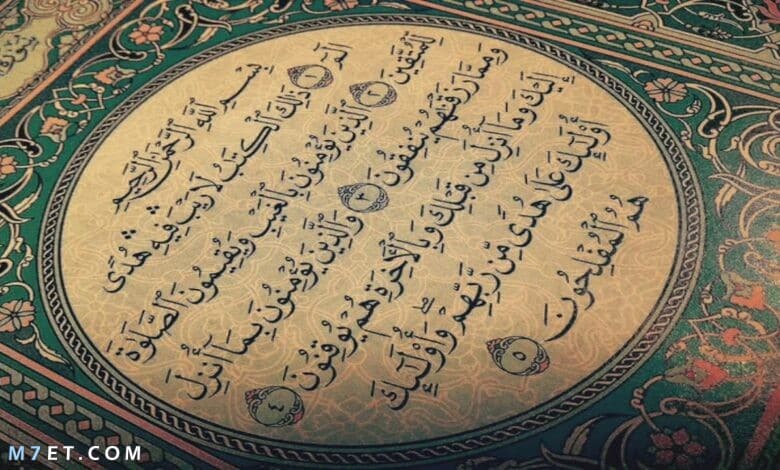 بِسْمِ ٱللَّهِ ٱلرَّحْمَٰنِ ٱلرَّحِيمِ
الٓمٓ ١ ذَٰلِكَ ٱلْكِتَٰبُ لَا رَيْبَ ۛ فِيهِ ۛ هُدًى
لِّلْمُتَّقِينَ ٢ ٱلَّذِينَ يُؤْمِنُونَ بِٱلْغَيْبِ وَيُقِيمُونَ ٱلصَّلَوٰةَ
وَمِمَّا رَزَقْنَٰهُمْ يُنفِقُونَ ٣ وَٱلَّذِينَ يُؤْمِنُونَ بِمَآ أُنزِلَ
إِلَيْكَ وَمَآ أُنزِلَ مِن قَبْلِكَ وَبِٱلْأٓخِرَةِ هُمْ يُوقِنُونَ ٤
أُو۟لَٰٓئِكَ عَلَىٰ هُدًى مِّن رَّبِّهِمْ ۖ وَأُو۟لَٰٓئِكَ
هُمُ ٱلْمُفْلِحُونَ ٥
M7ET.COM